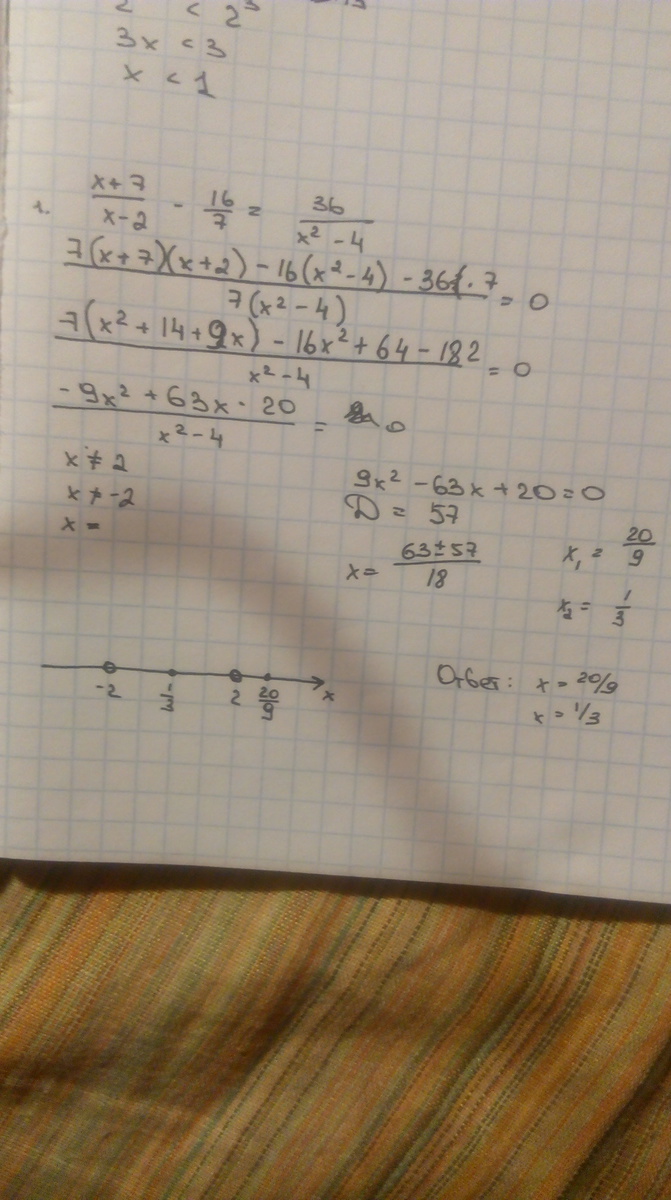 3x < 3
x < 1
1. (x+7)/(x-2) - 16/7 = 36/(x² - 4)
(7(x+7)(x+2) - 16(x² - 4) - 36 · 7)/(7(x² - 4)) = 0
(7(x² + 14 + 9x) - 16x² + 64 - 182)/(x² - 4) = 0
(-9x² + 63x - 20)/(x² - 4) = 0
x ≠ 2
x ≠ -2
x =
9x² - 63x + 20 = 0
D = 57
x = (63 ± 57)/18
x₁ = 20/9
x₂ = 1/3
-2 1/3 2 20/9 x
Ответ: x = 20/9
x = 1/3